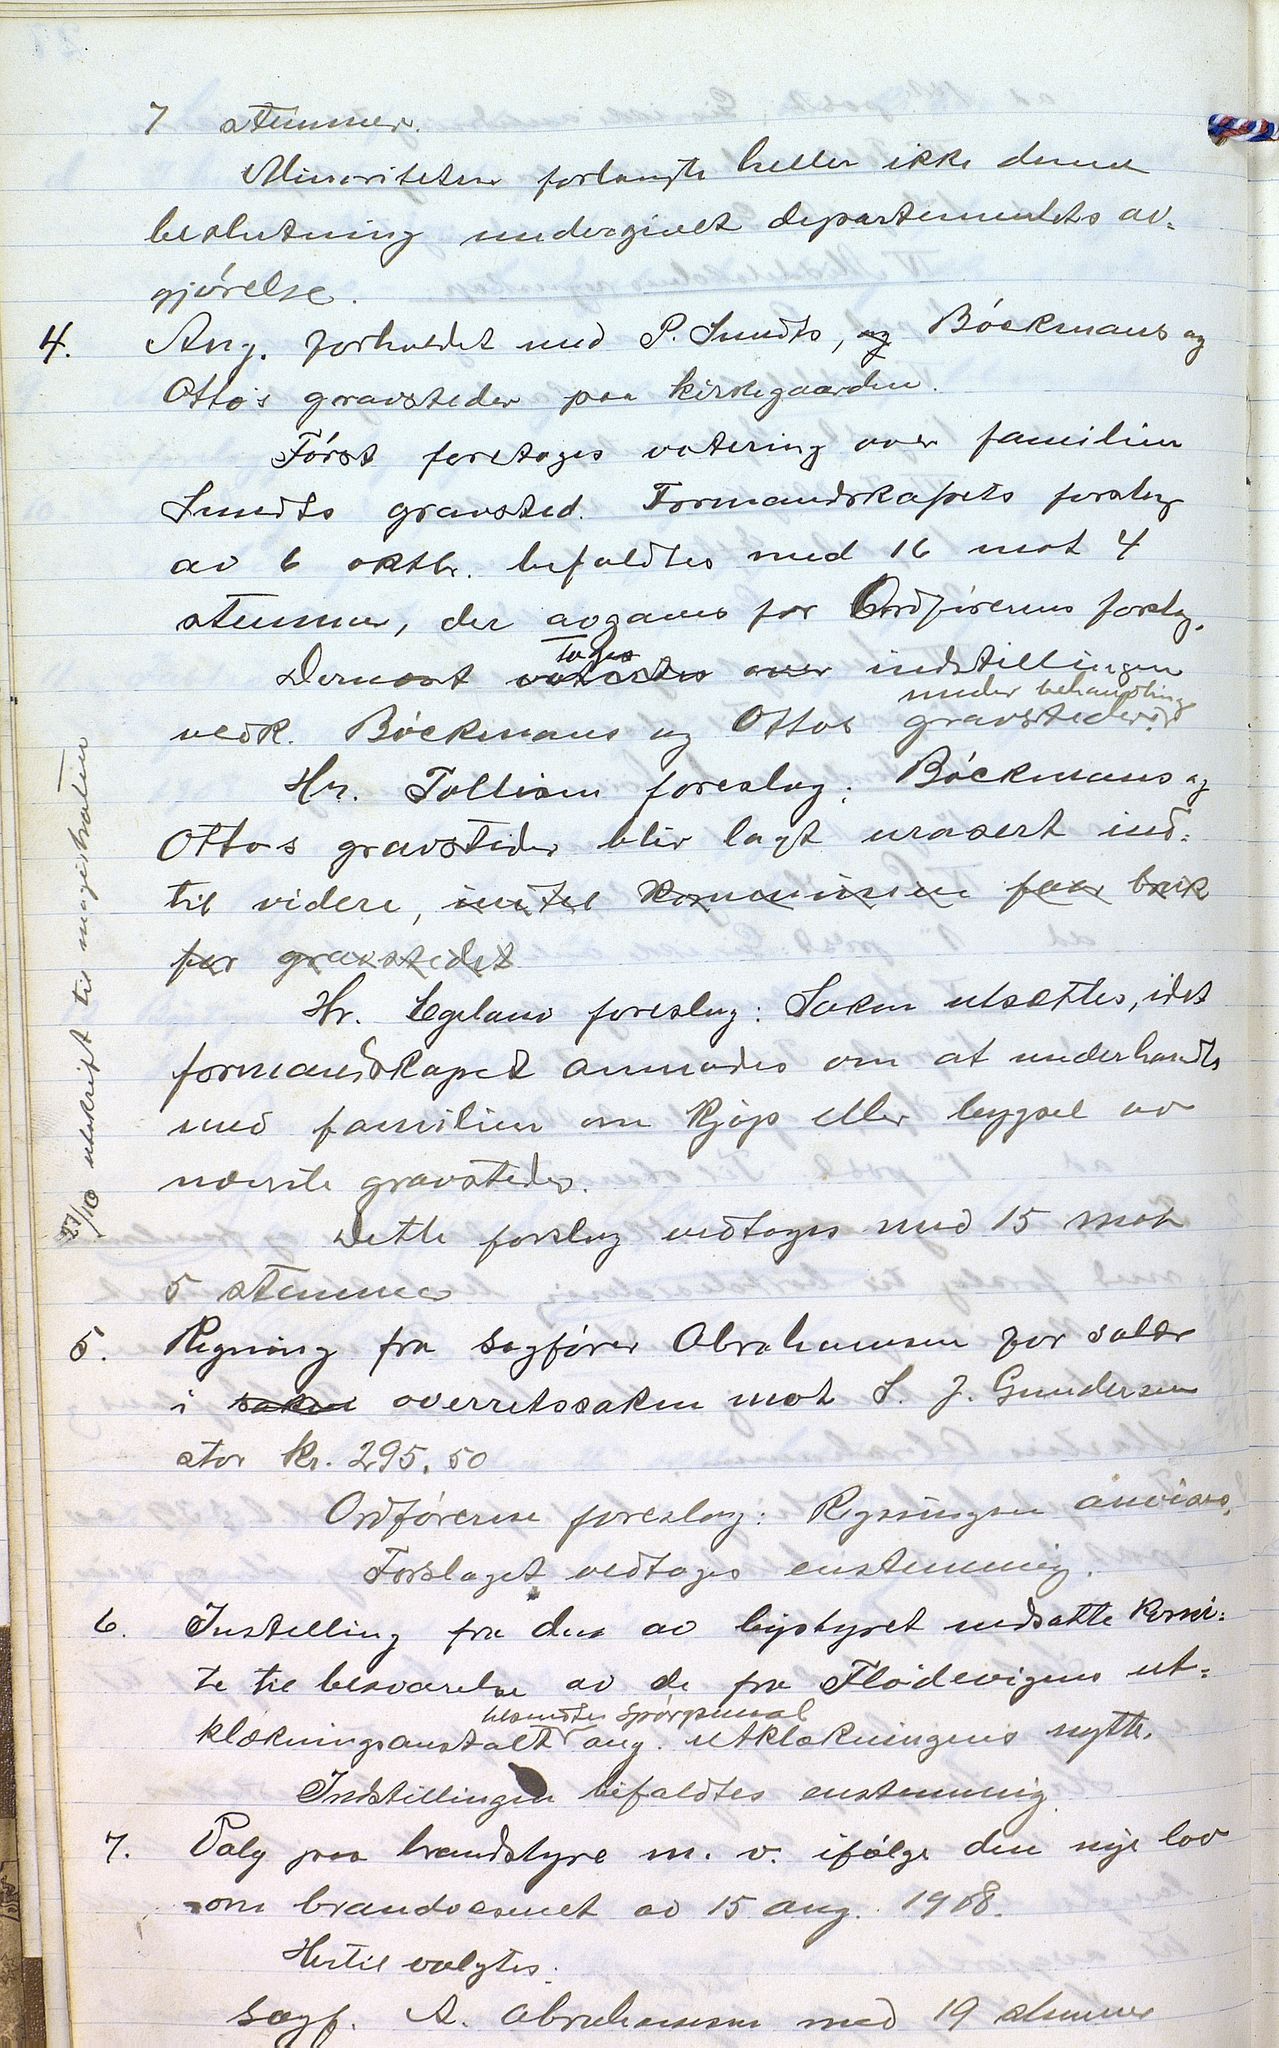 7 stemmer.
Minoriteten forlangte heller ikke denne
beslutning undergivet departementets av-
gjørelse.
4. Ang. forholdet med P. Smidts, og Bøckmans og
Otto's gravsteder paa kirkegaarden.
Først foretoges votering over familien
Smidts gravsted. Formandskapets forslag
av 6 oktbr. bifaldtes med 16 mot 4
stemmer, der avgaves for Ordførerens forslag.
Dernæst votertes toges over indstillingen
vedk. Bøckmans og Ottos gravsteder under behandling
Hr. Tallisen foreslog: Bøckmans og
Otto's gravsteder blir lagt urasert ind-
til videre, indtil kommunen faar bruk
for gravstedet
Hr. Egeland foreslog: Saken utsættes, idet
formandskapet anmodes om at underhandle
med familien om kjøp eller bygsel av
nævnte gravsteder.
Dette forslag vedtoges med 15 mot
5 stemmer
27/10 utskrift til magistraten
5. Regning fra sagfører Abrahamsen for salær
i saken overretssaken mot S. J. Gundersen
stor kr. 295.50
Ordføreren foreslog: Regningen anvises.
Forslaget vedtoges enstemmig.
6. Instilling fra den av bystyret nedsatte komi-
te til besvarelse av de fra Flødevigens ut-
klækningsanstalt tilsendte spørgsmaal ang. utklækningens nytte.
Indstillingen bifaldtes enstemmig
7. Valg paa brandstyre m. v. ifølge den nye lov
om brandvæsenet av 15 aug. 1908.
Hertil valgtes:
Sagf. A. Abrahamsen med 19 stemmer